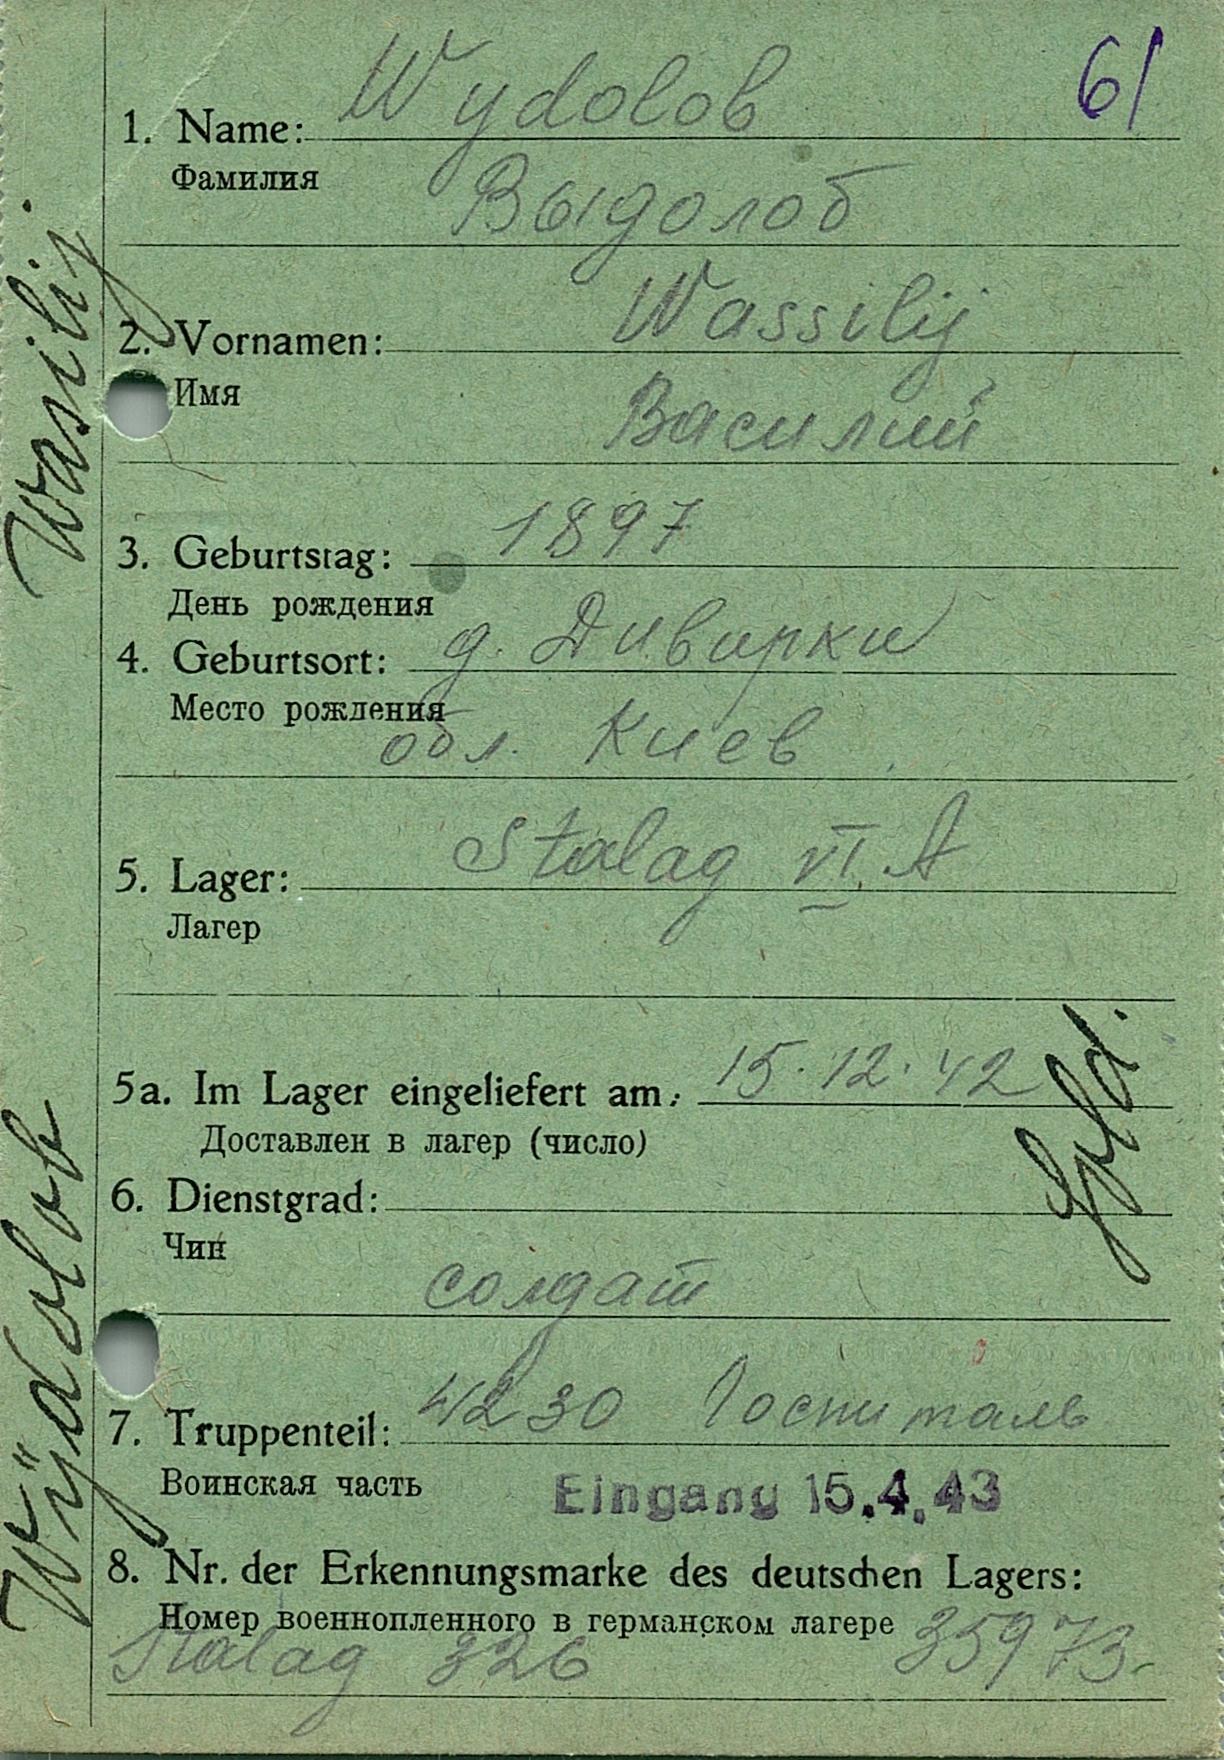 61
1. Name: Wydolob
Фамилия Выдолоб
2. Vornamen: Wassilij
Имя Василий
3. Geburtstag: 1897
День рождения
4. Geburtsort: д. Дивирки
Место рождения
обл. Киев
5. Lager: Stalag VI A
Лагер
5a. Im Lager eingeliefert am: 15.12.42
Доставлен в лагер (число)
6. Dienstgrad: Sold.
Чин
солдат
7. Truppenteil: 4230 Госпиталь
Воинская часть
Eingang 15.4.43
8. Nr. der Erkennungsmarke des deutschen Lagers:
Номер военнопленного в германском лагере
Stalag 326 35973
Wÿdolob Wasilij